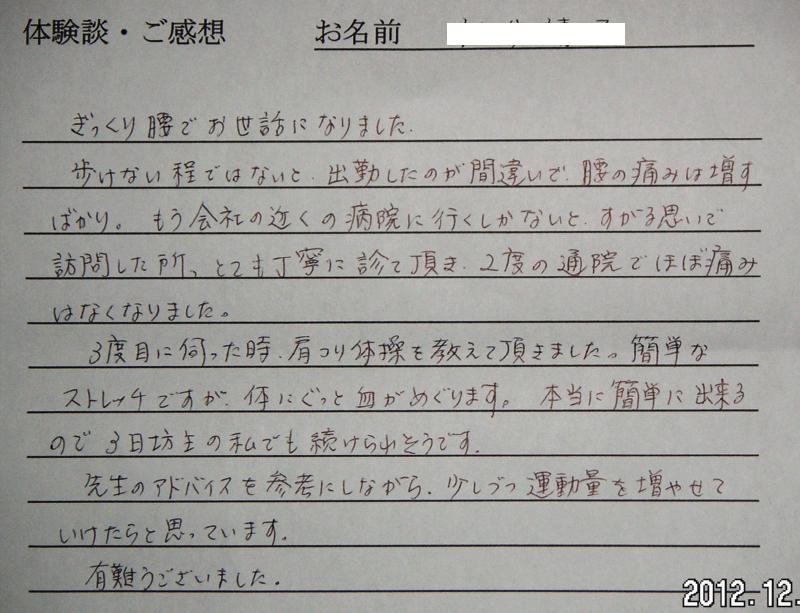 体験談・ご感想 お名前
ぎっくり腰でお世話になりました.
歩けない程ではないと、出勤したのが間違いで、腰の痛みは増す
ばかり。もう会社の近くの病院に行くしかないと、すがる思いで
訪問した所、とても丁寧に診て頂き、2度の通院でほぼ痛み
はなくなりました。
3度目に伺った時、肩コリ体操を教えて頂きました。簡単な
ストレッチですが、体にぐっと血がめぐります。本当に簡単に出来る
ので3日坊主の私でも続けられそうです.
先生のアドバイスを参考にしながら、少しづつ運動量を増やせて
いけたらと思っています.
有難うございました.
2012.12.